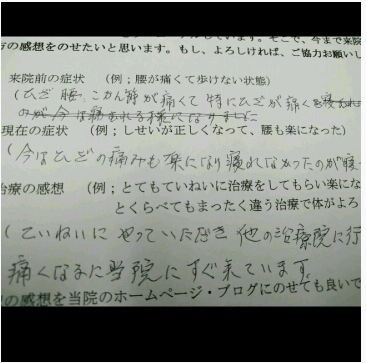 の感想をのせたいと思います。もし、よろしければ、ご協力お願いし
来院前の症状 (例；腰が痛くて歩けない状態)
(ひざ 腰、こかん節が痛くて 特にひざが痛くを寝むれな
のが今は寝むれる様になりました
現在の症状 (例；しせいが正しくなって、腰も楽になった)
(今はひざの痛みも楽になり寝れなかったのが寝
治療の感想 (例；とてもていねいに治療をしてもらい楽にな
とくらべてもまったく違う治療で体がよろ
(ていねいにやっていただき 他の治療院に行
痛くなるに当院にすぐ来ています。
の感想を当院のホームページ・ブログにのせても良いで